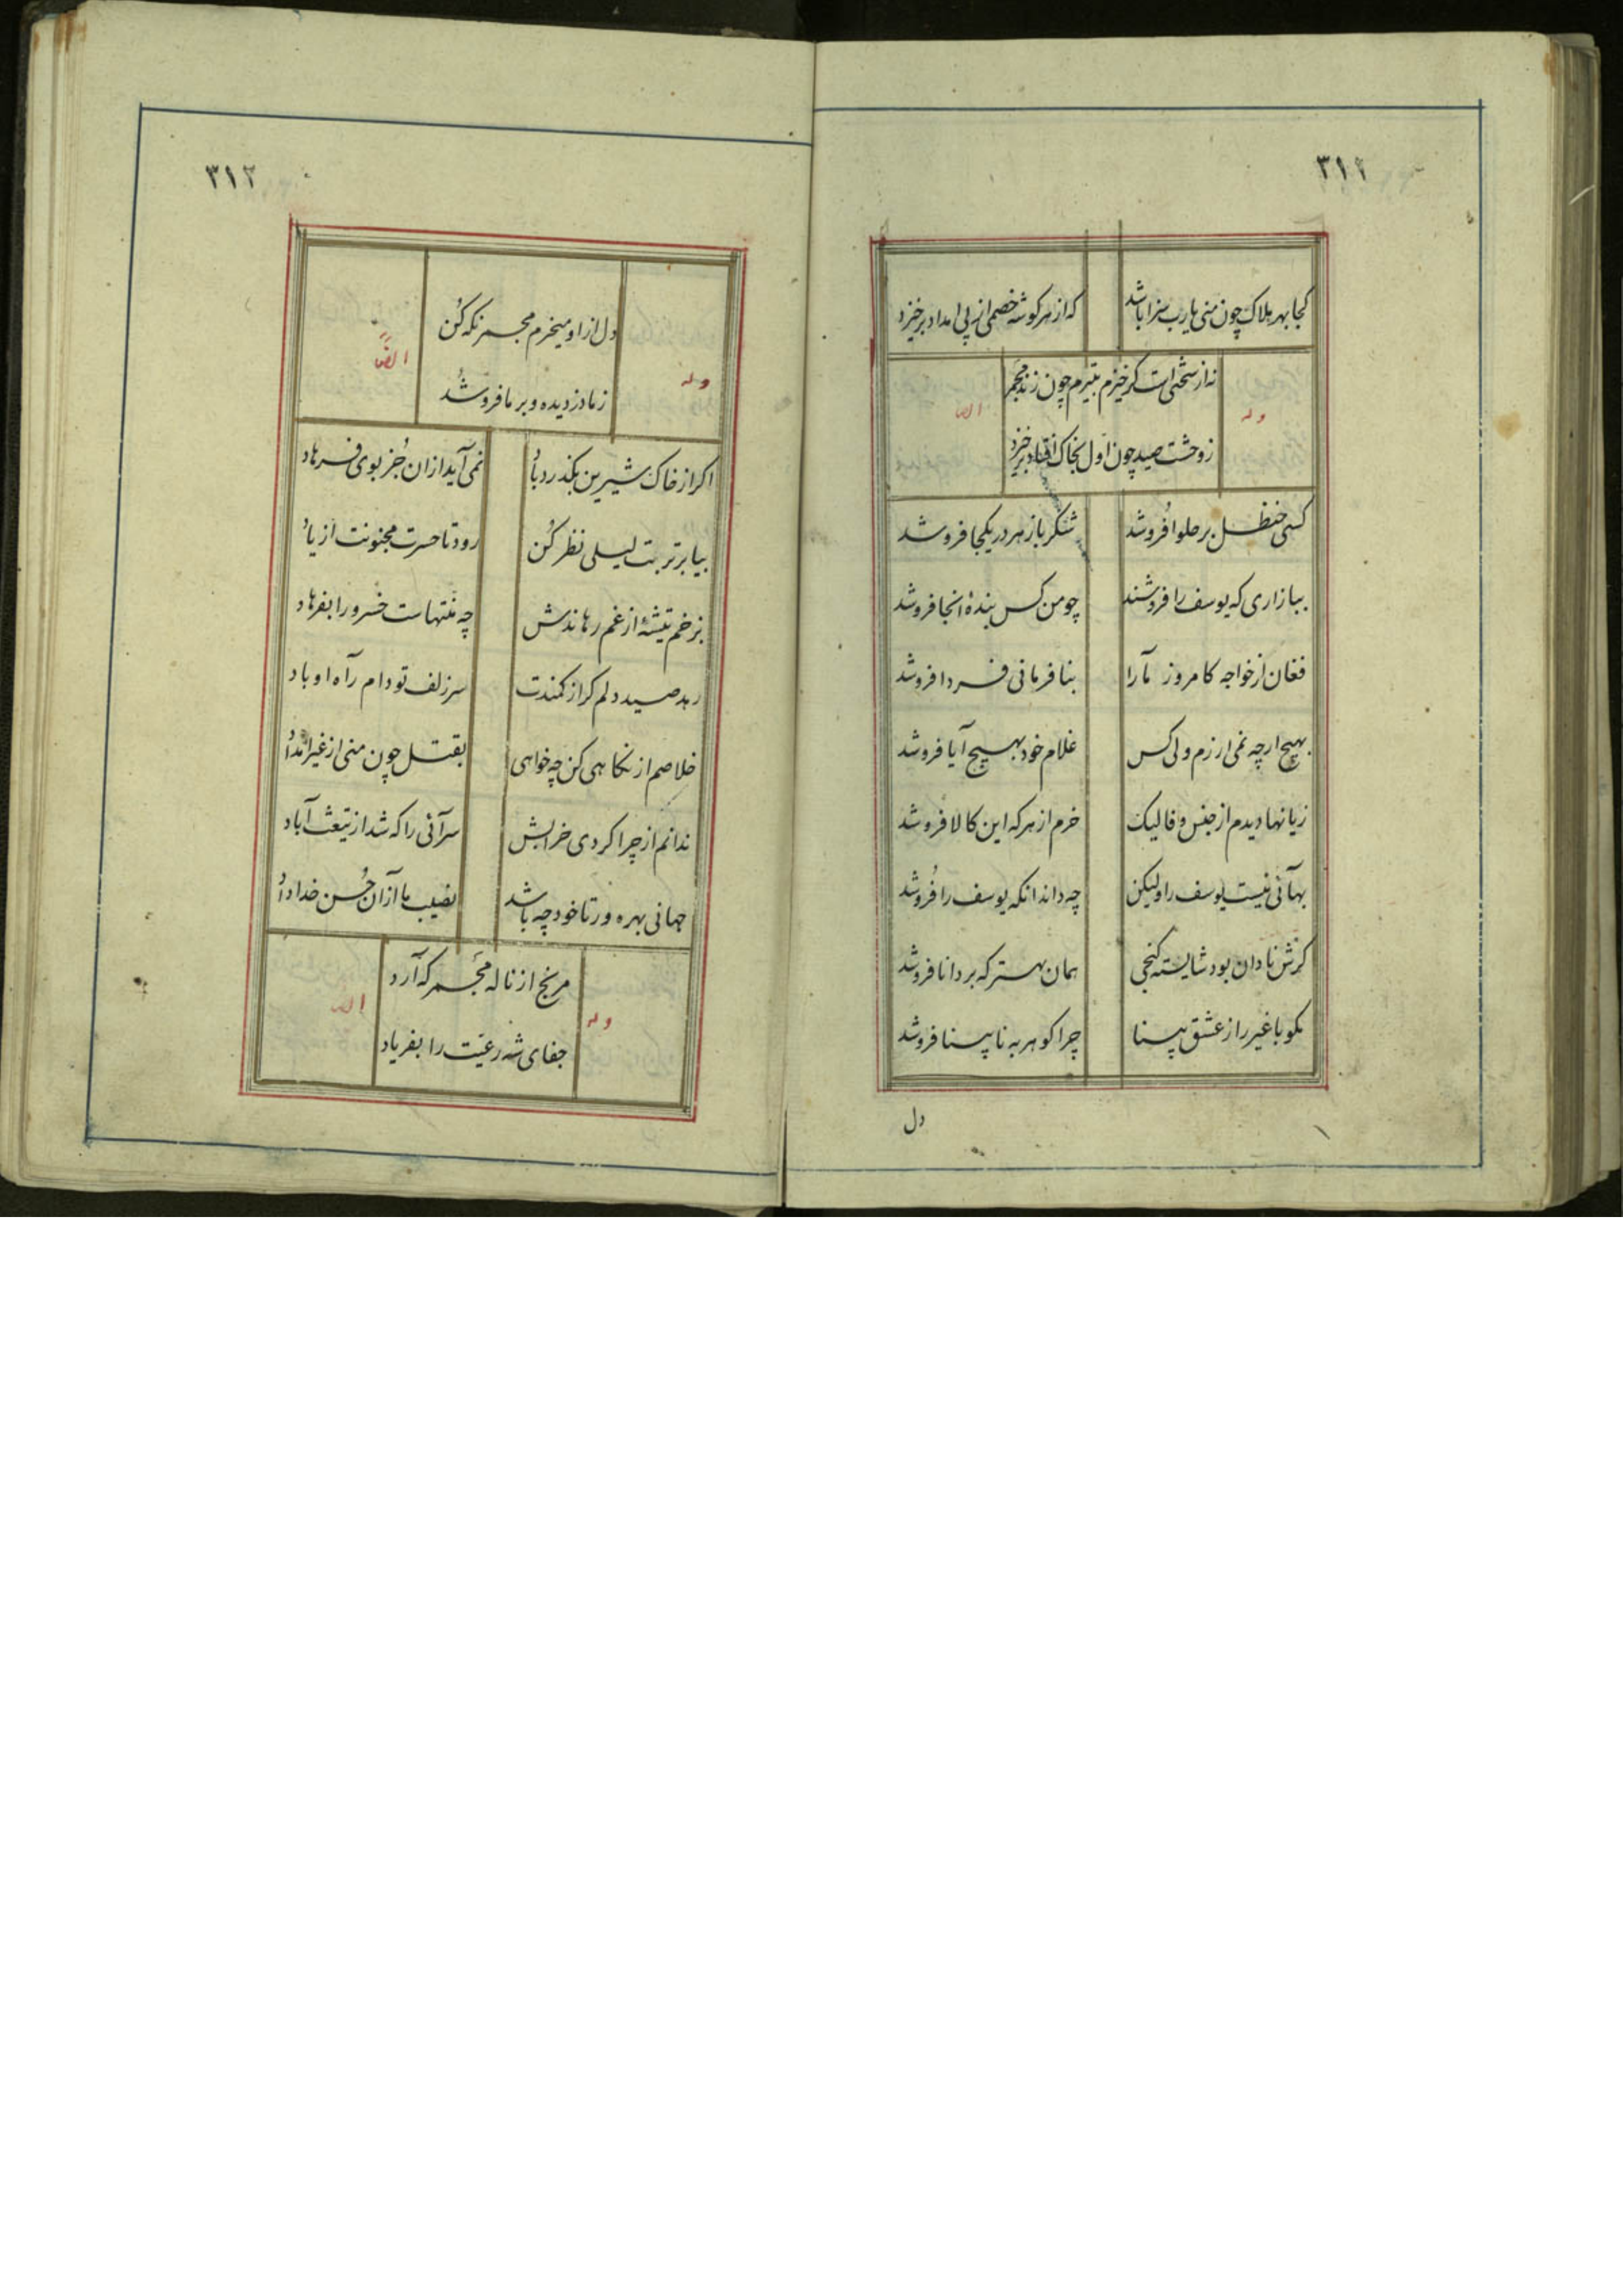 ۳۱۱
کجا بهر هلاک چون منی یارب سزا باشد
که از هر کوشه خصمی از پی امداد برخیزد
وله
نه از سختی است کر خیزم بتیرم چون زند مجمر
ایضا
ز وحشت صید چون اول بخاک افتاد برخیزد
کسی حنظل بر حلوا فروشد
شکر با زهر در یکجا فروشد
ببازاری که یوسف را فروشند
چو من کس بندهٔ انجا فروشد
فغان از خواجه کامروز ما را
بنافرمانی فردا فروشد
بهیچ ارچه نمی ارزم ولی کس
غلام خود بهیچ آیا فروشد
زیانها دیدم از جنس وفا لیک
خرم از هر که این کالا فروشد
بهآئی نیست یوسف را ولیکن
چه داند انکه یوسف را فروشد
کرش نادان بود شایسته کنجی
همان بهتر که بر دانا فروشد
مکو با غیر راز عشق بینا
چرا کوهر به نابینا فروشد
دل
۳۱۲
وله
دل از او میخرم مجمر نکه کن
ایضاً
ز ما دزدیده و بر ما فروشد
اکر از خاک شیرین بکذرد باد
نمی آید از ان جز بوی فرهاد
بیا بر تربت لیلی نظر کن
رود تا حسرت مجنونت از یاد
بزخم تیشهٔ از غم رهاندش
چه منتهاست خسرو را بفرهاد
رهد صید دلم کر از کمندت
سر زلف تو دام راه او باد
خلاصم از نکاهی کن چه خواهی
بقتل چون منی از غیر امداد
ندانم از چرا کردی خرابش
سرآئی را که شد از تیغت آباد
جهانی بهره ور تا خود چه باشد
نصیب ما از آن حُسن خداداد
وله
مرنج از ناله مجمر که آرد
ایضا
جفای شه رعیت را بفریاد